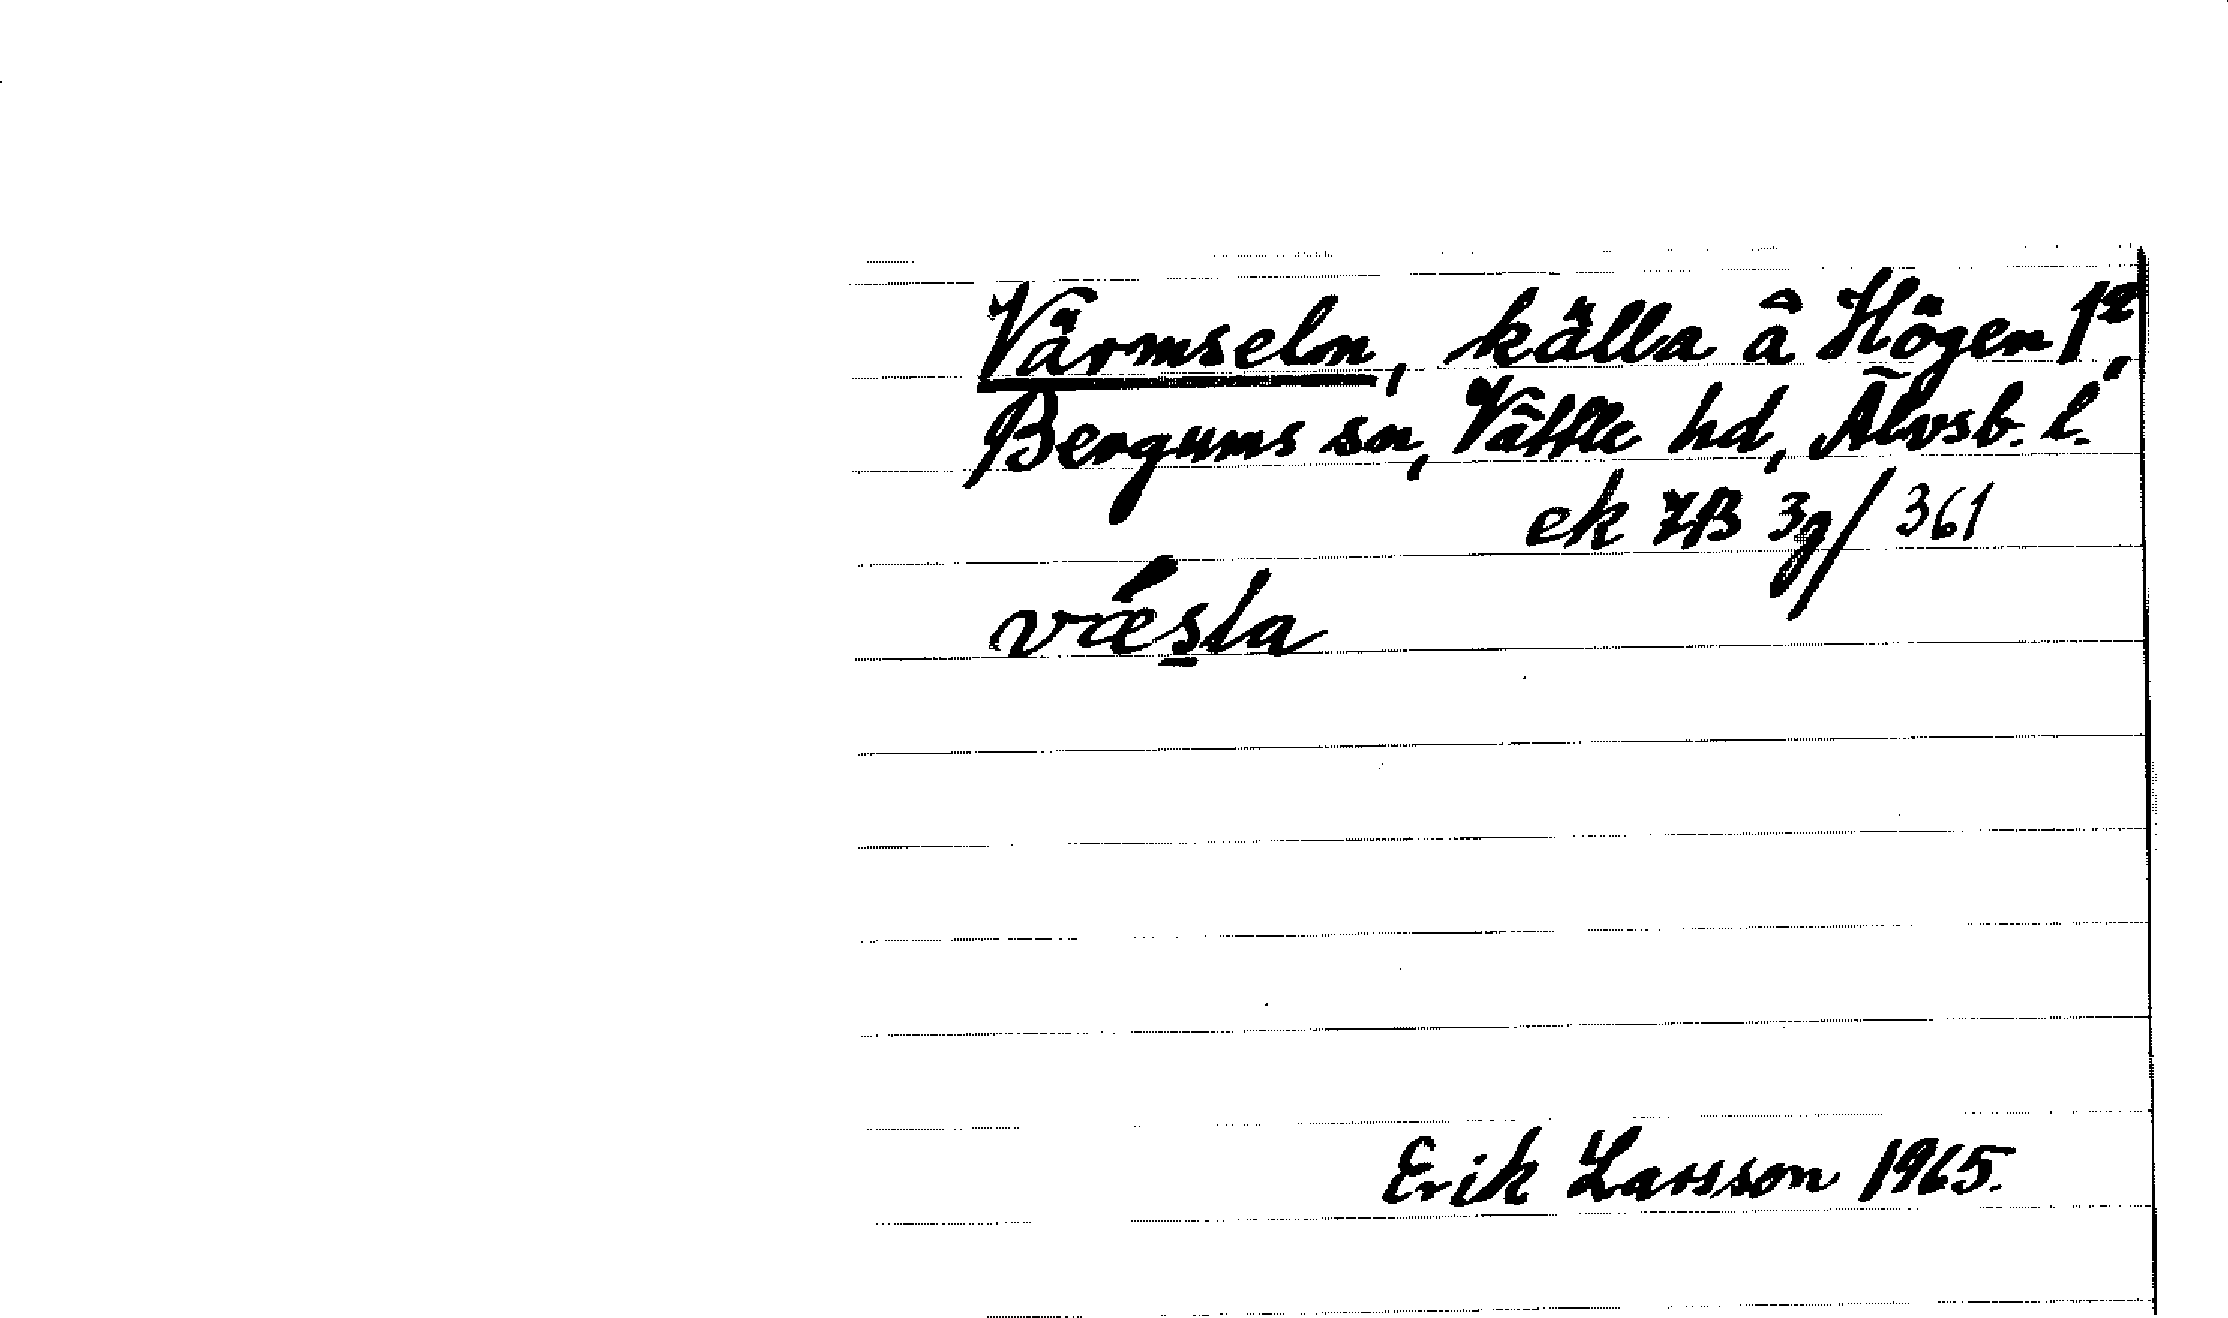 Värmseln, källa å Högen 1²,
Bergums sn, Vättle hd, Älvsb. l.
ek 7B 3g/361
vǽs̱la
Erik Larsson 1965.